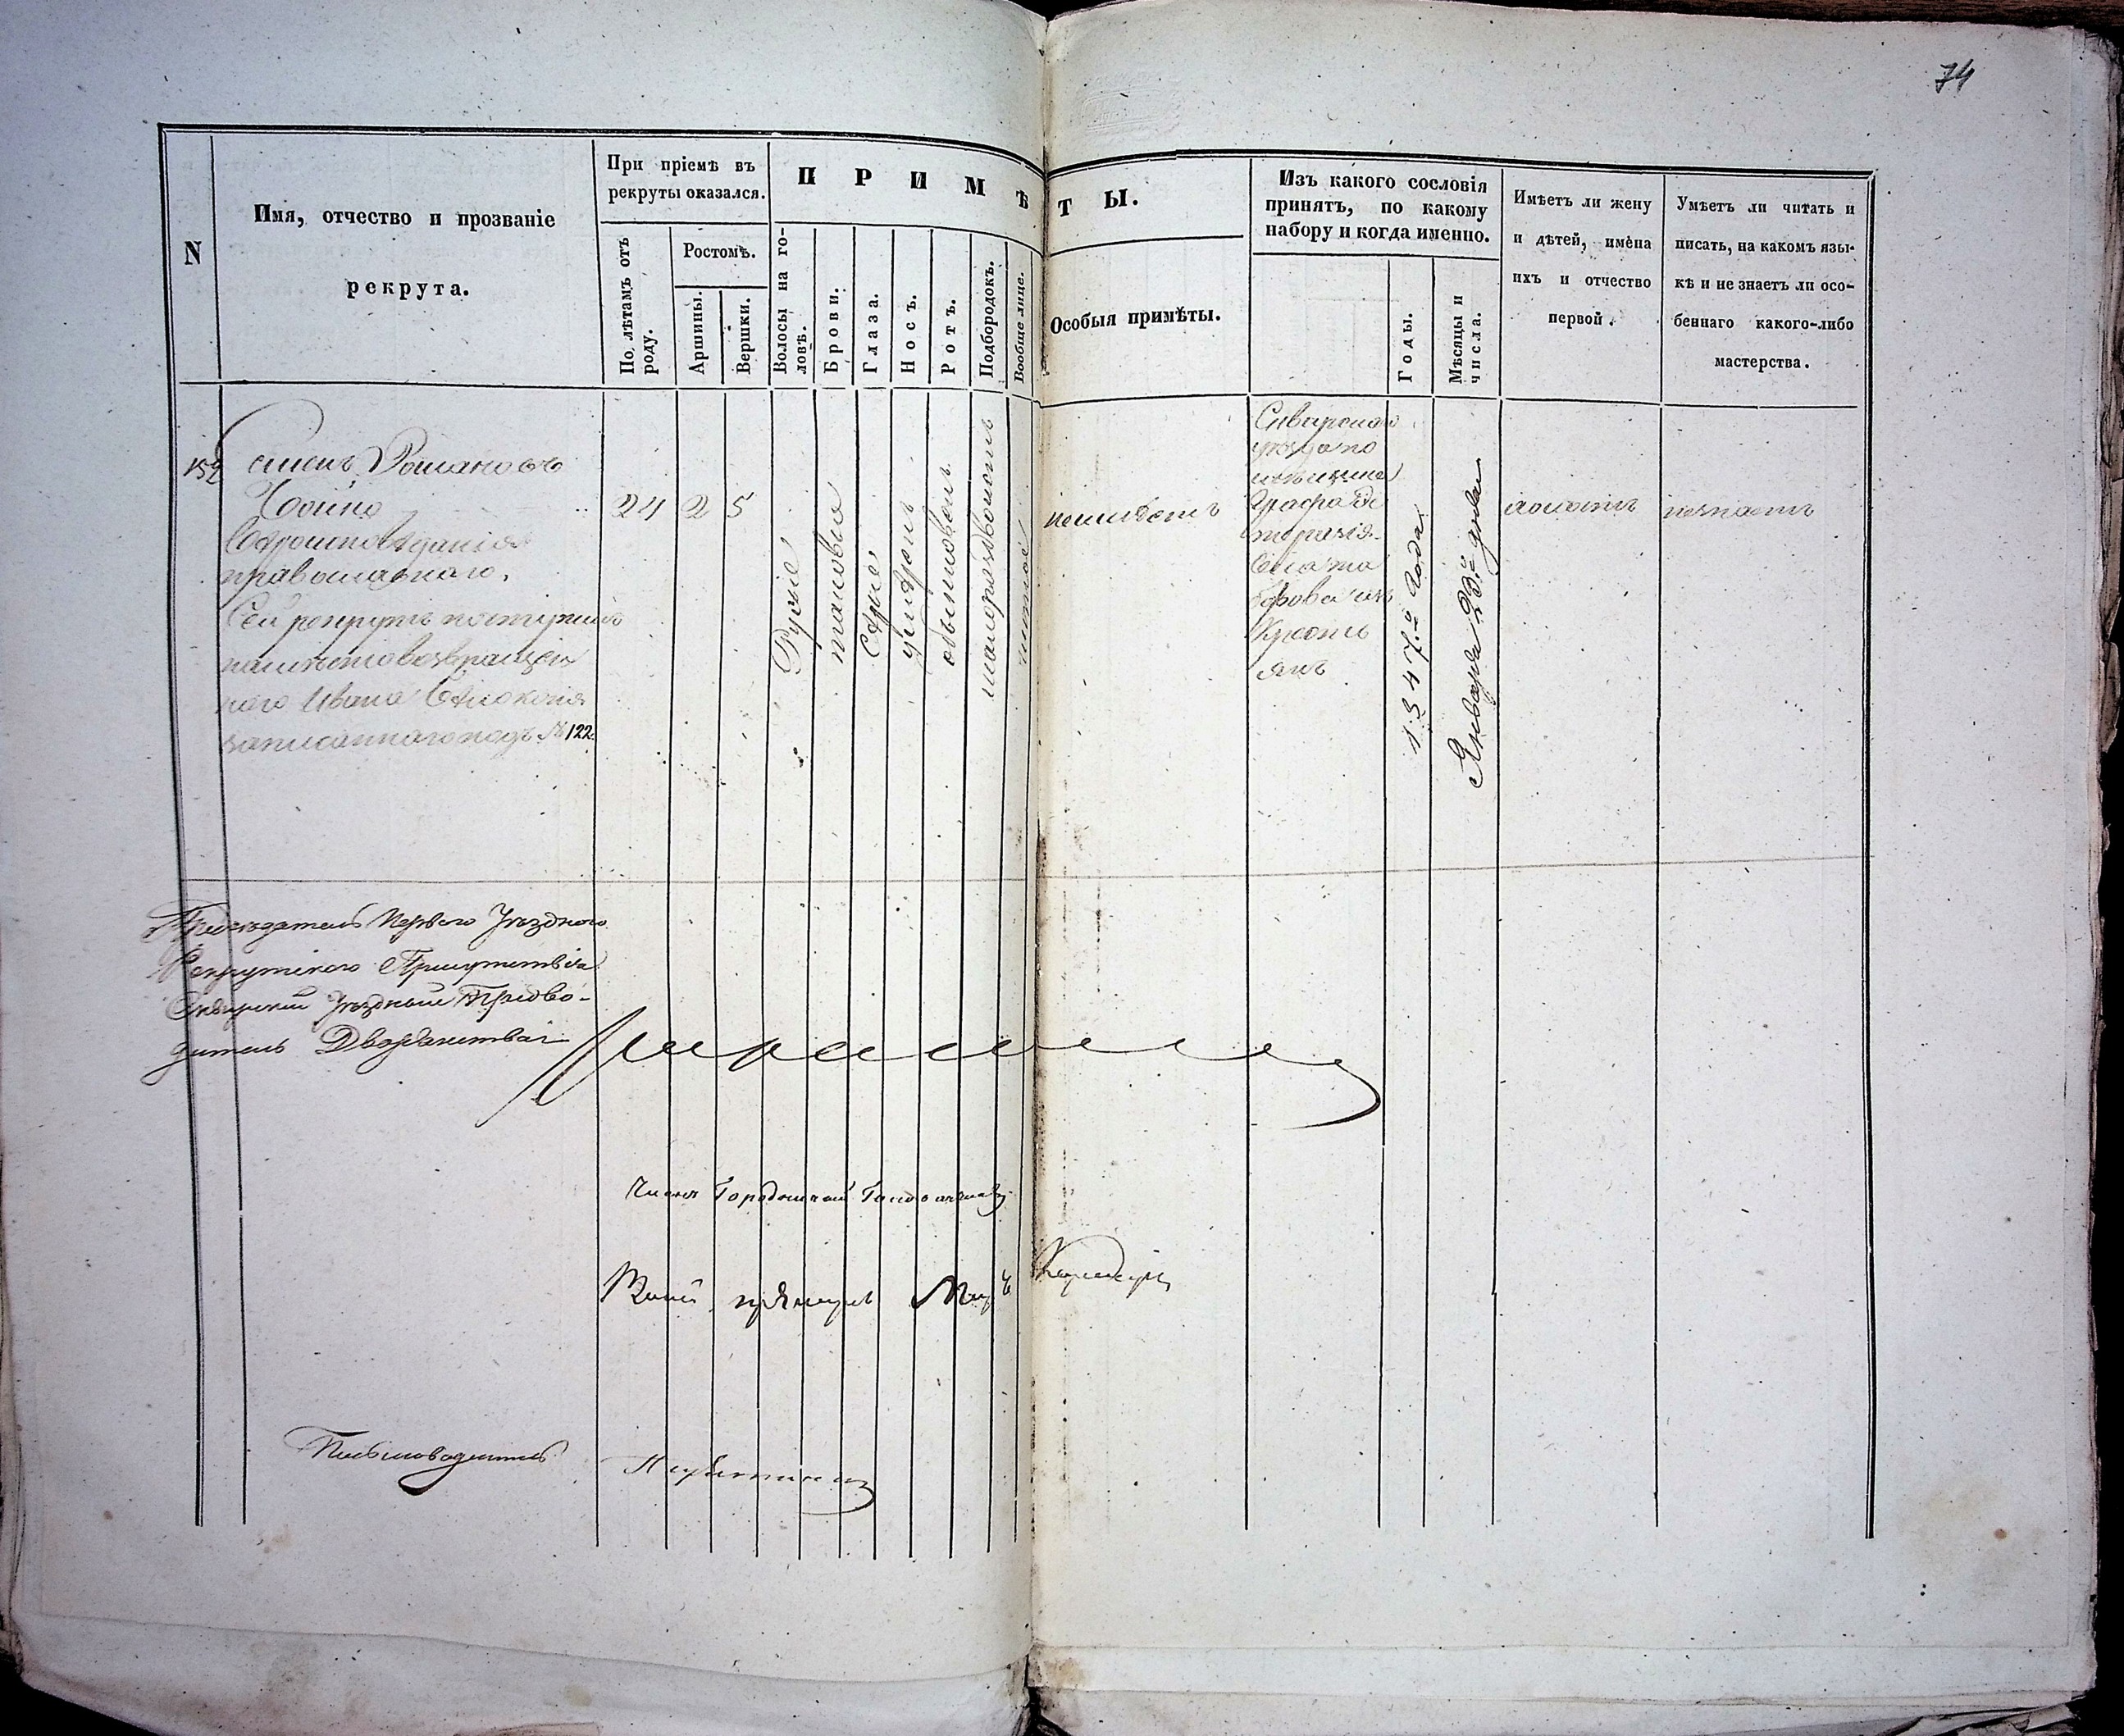 74
N
Имя, отчество и прозваніе
рекрута.
При пріемѣ въ
рекруты оказался.
По лѣтамъ отъ
роду.
Ростомъ.
Аршины.
Вершки.
ПРИМѢТЫ.
Волосы на го-
ловѣ.
Брови.
Глаза.
Носъ.
Ротъ.
Подбородокъ.
Вообще лице.
Особыя примѣты.
Изъ какого сословія
принятъ, по какому
набору и когда именно.
Годы.
Мѣсяцы и
числа.
Имѣетъ ли жену
и дѣтей, имена
ихъ и отчество
первой.
Умѣетъ ли читать и
писать, на какомъ язы-
кѣ и не знаетъ ли осо-
беннаго какого-либо
мастерства.
152
Семенъ Романовъ
вѣроисповѣданія
православнаго.
Сей рекрутъ поступилъ
намѣсто возвращен
наго Ивана
записаннаго подъ № 122.
24
2
5
Русые
таковые
Сѣрые
умѣрен
обыкновен
чистое
неимѣетъ
Сквирскаго
уѣзда по
мѣщика
Графа
Кресть
янъ
1847го Года
Января 23го дня
холостъ
незнаетъ
Предсѣдатель Перваго Уѣзднаго
Рекрутскаго Присутствія
Сквирский Уѣздный Предво-
дитель Дворянства
Членъ Городничий
Письмоводитель